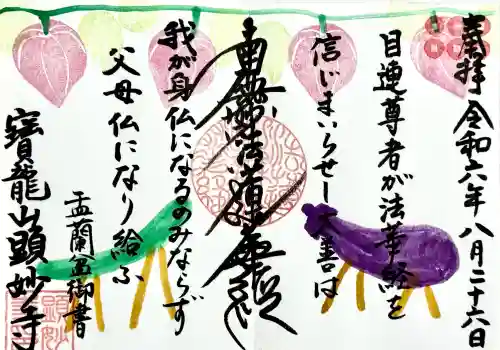 奉拝 令和六年八月二十六日
目連尊者が法華経を
信じまいらせし大善は
南無妙法蓮華経
我が身仏になるのみならず
父母仏になり給ふ
盂蘭盆御書
寳龍山顕妙寺